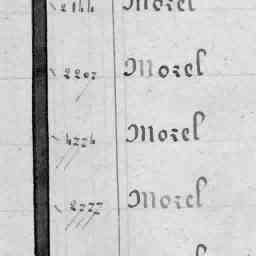 2144 Morel
2202 Morel
4774 Morel
2777 Morel